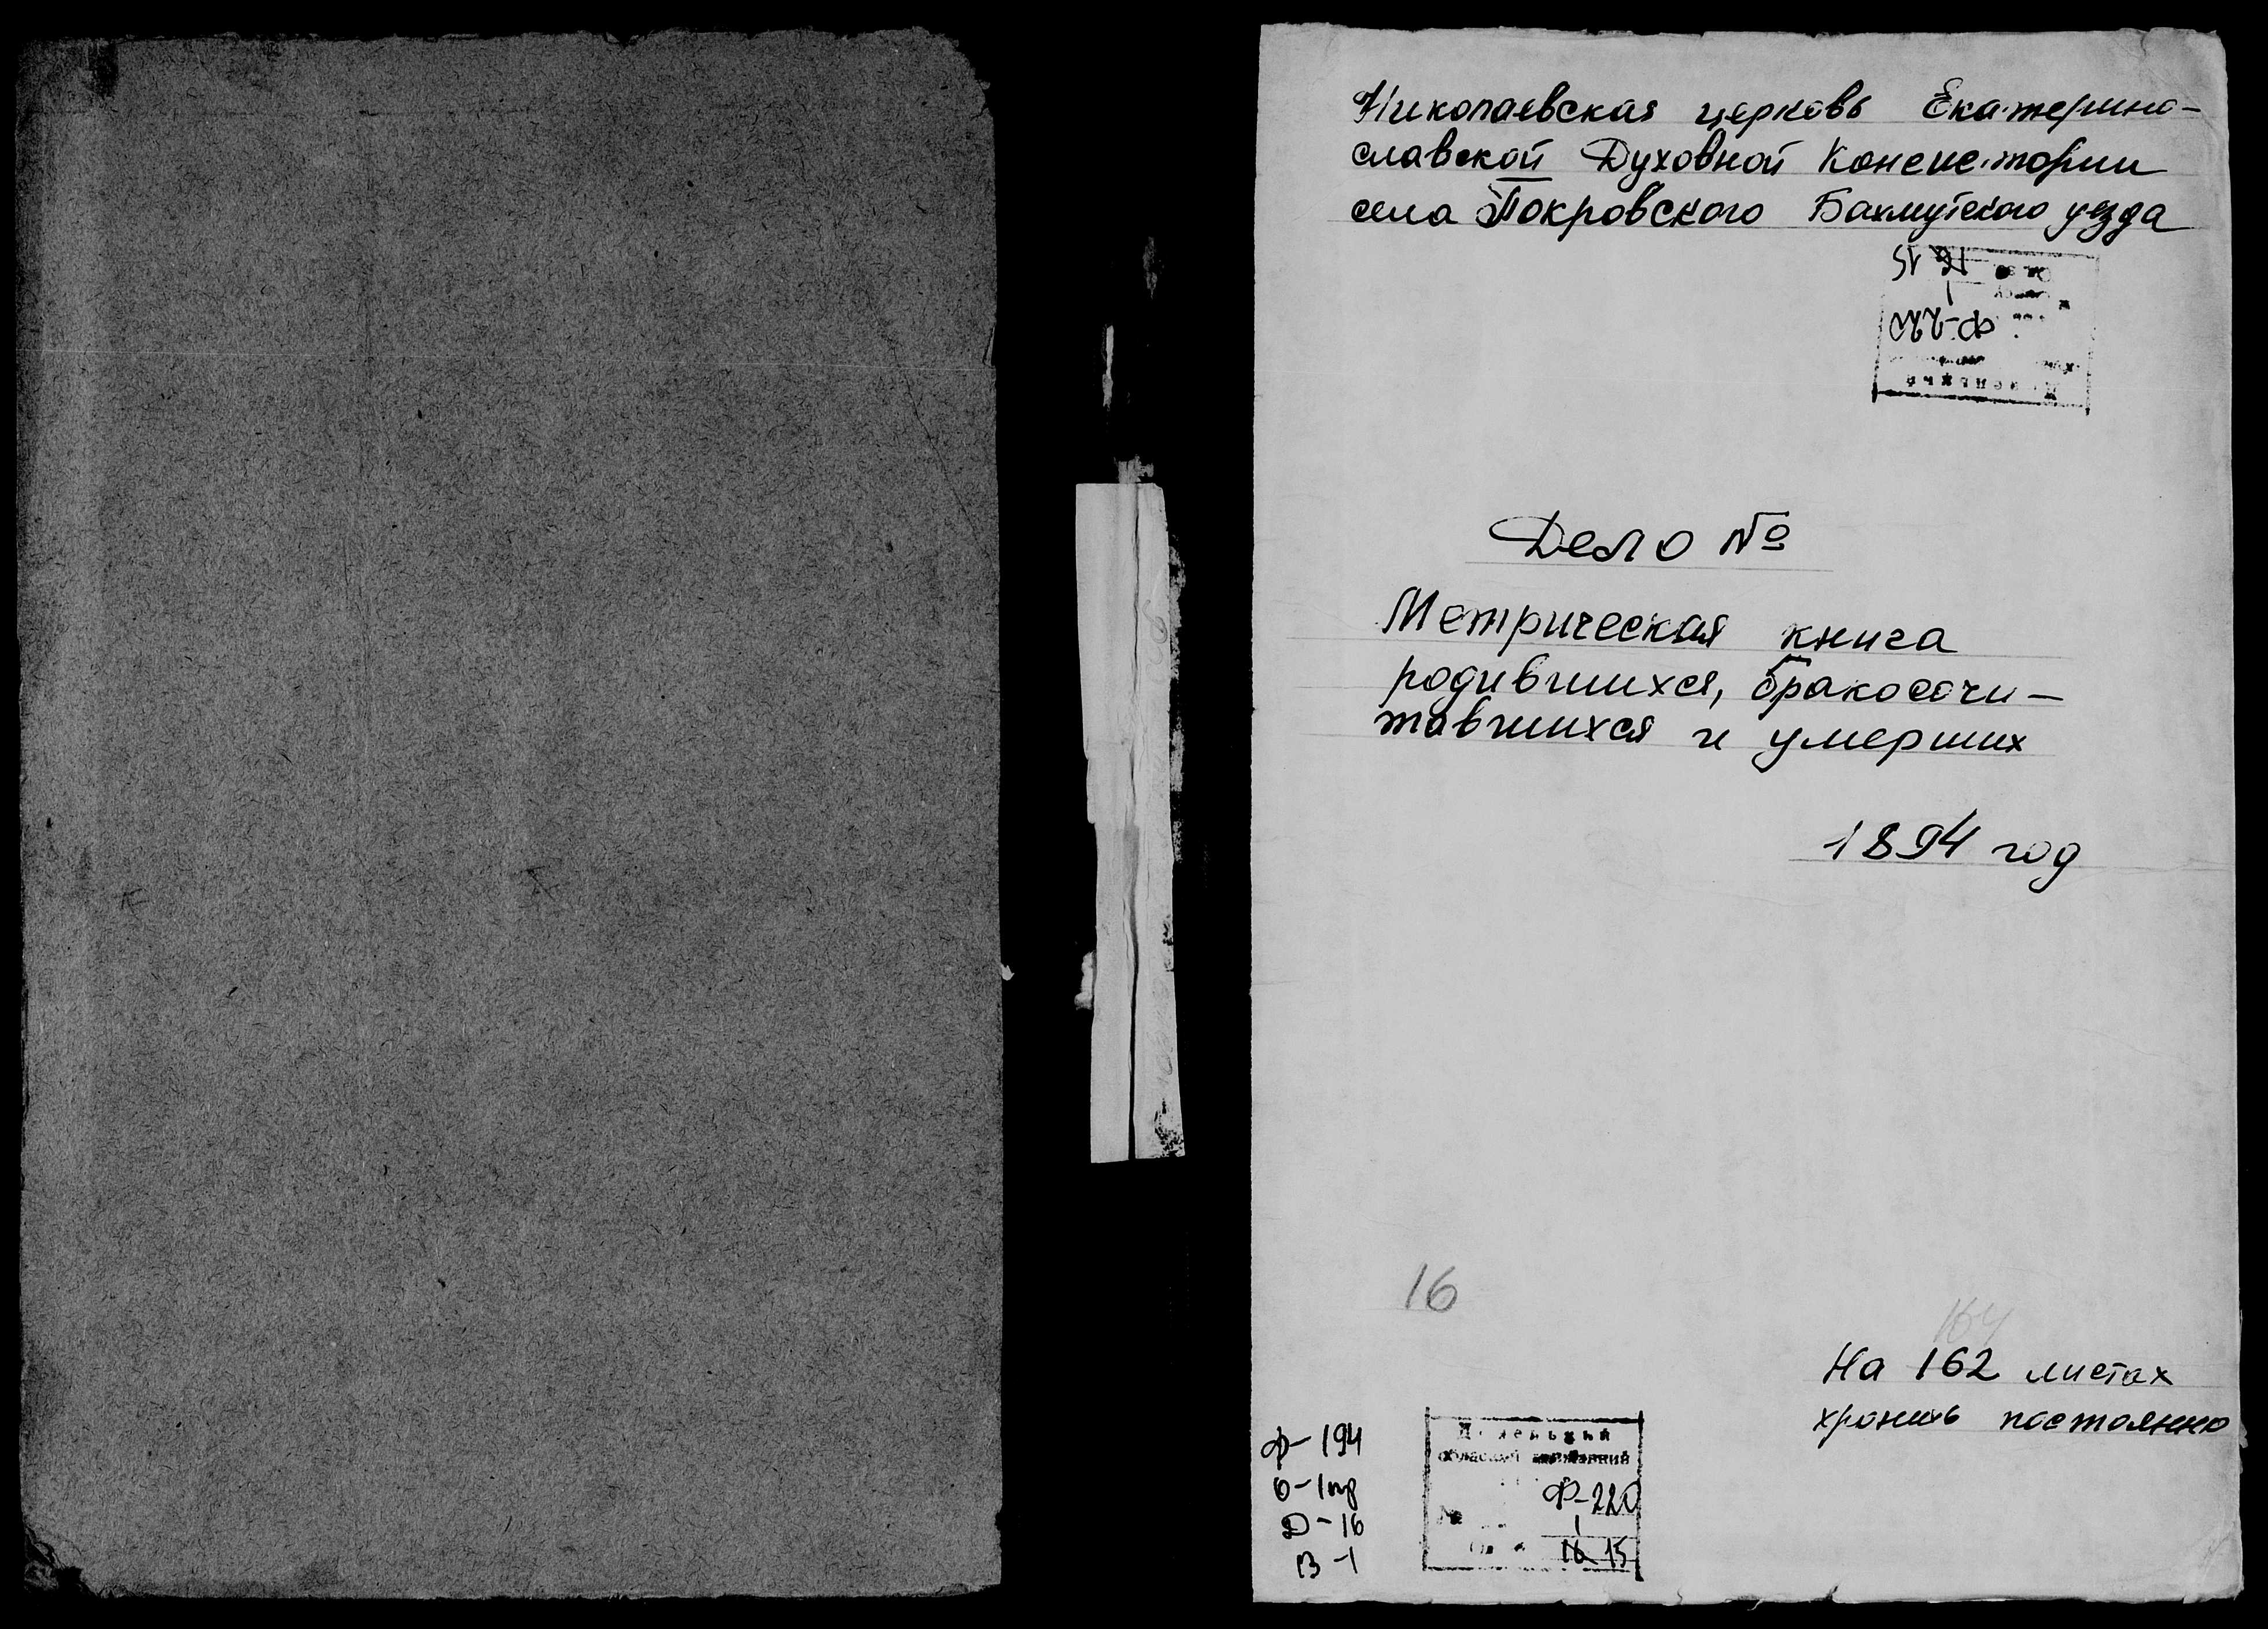 Николаевская церковь Екатерино-
славской Духовной Консистории
села Покровского Бахмутского уезда
15 16
1
Ф-220
Дело №
Метрическая книга
родившихся, бракосочи-
тавшихся и умерших
1894 год
16
164
На 162 листах
хранить постоянно
Ф-194
О-1пр
Д-16
В-1
Донецький
обласний державний
Ф-220
№
1
16 15